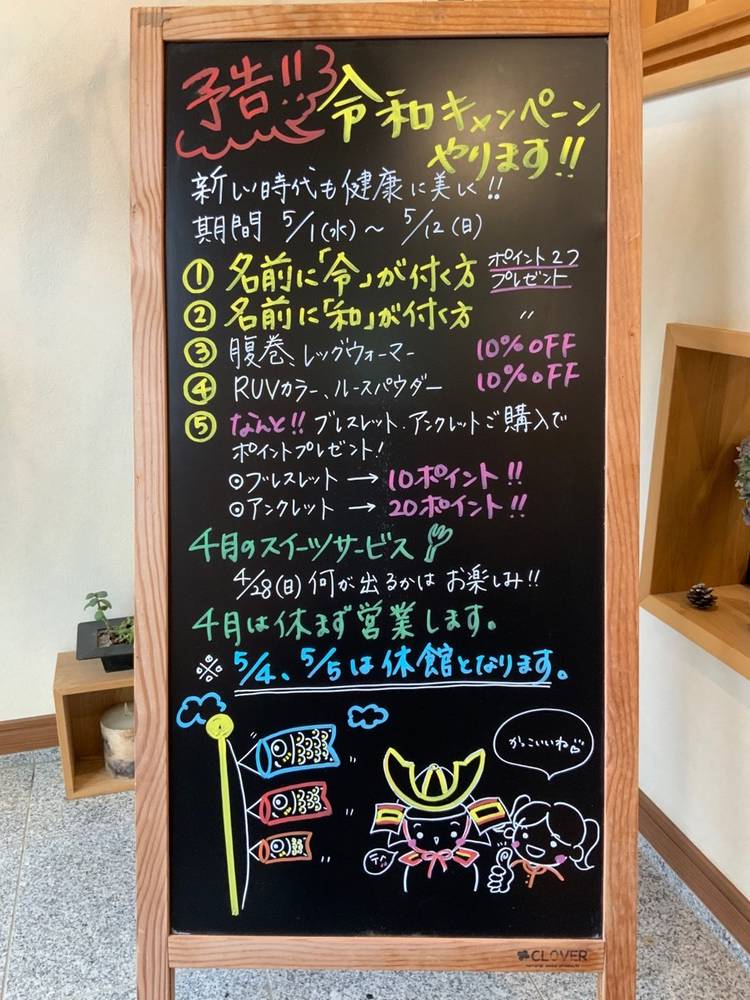 予告!!
令和キャンペーン
やります!!
新しい時代も健康に美しく!!
期間 5/1(水)〜 5/12(日)
① 名前に「令」が付く方 ポイント2つ
プレゼント
② 名前に「和」が付く方 〃
③ 腹巻、レッグウォーマー 10%OFF
④ RUVカラー、ルースパウダー 10%OFF
⑤ なんと!! ブレスレット、アンクレットご購入で
ポイントプレゼント!
◎ブレスレット → 10ポイント!!
◎アンクレット → 20ポイント!!
4月のスイーツサービス
4/28(日)何が出るかは お楽しみ!!
4月は休まず営業します。
※ 5/4、5/5は休館となります。
かっこいいね♡
CLOVER